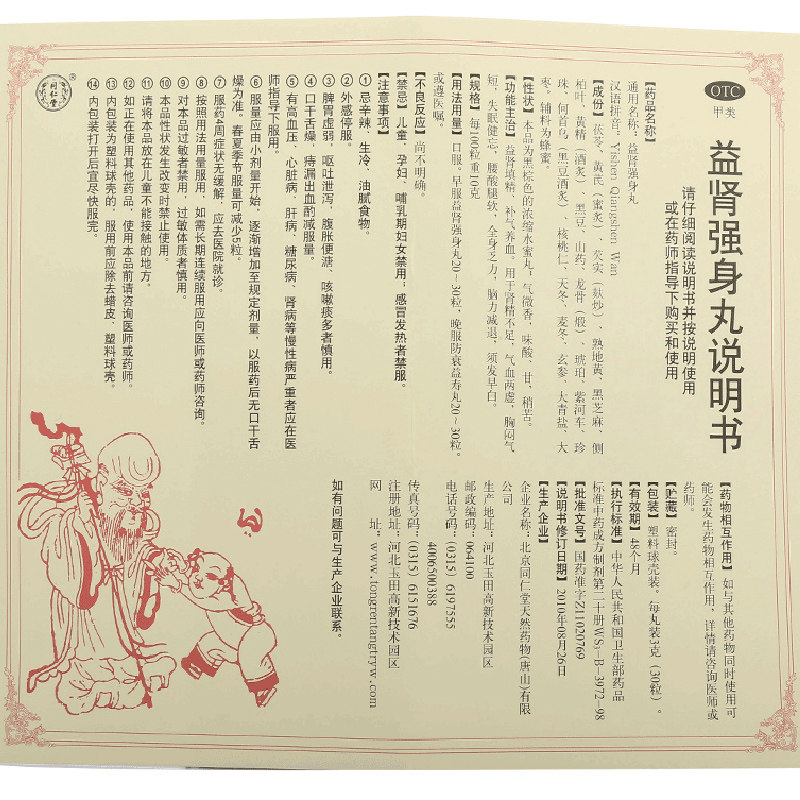 OTC
甲类
益肾强身丸说明书
请仔细阅读说明书并按说明使用
或在药师指导下购买和使用
【药品名称】
通用名称：益肾强身丸
汉语拼音：Yishen Qiangshen Wan
【成份】茯苓、黄芪（蜜炙）、芡实（麸炒）、熟地黄、黑芝麻、侧
柏叶、黄精（酒炙）、黑豆、山药、龙骨（煅）、琥珀、紫河车、珍
珠、何首乌（黑豆酒炙）、核桃仁、天冬、麦冬、玄参、大青盐、大
枣。辅料为蜂蜜。
【性状】本品为黑棕色的浓缩水蜜丸；气微香，味酸、甘、稍苦。
【功能主治】益肾填精、补气养血。用于肾精不足，气血两虚，胸闷气
短，失眠健忘，腰酸腿软，全身乏力，脑力减退，须发早白。
【规格】每100粒重10克
【用法用量】口服。早服益肾强身丸20～30粒，晚服防衰益寿丸20～30粒。
或遵医嘱。
【不良反应】尚不明确。
【禁忌】儿童、孕妇、哺乳期妇女禁用；感冒发热者禁服。
【注意事项】
①忌辛辣、生冷、油腻食物。
②外感停服。
③脾胃虚弱，呕吐泄泻，腹胀便溏、咳嗽痰多者慎用。
④口干舌燥，痔漏出血酌减服量。
⑤有高血压、心脏病、肝病、糖尿病、肾病等慢性病严重者应在医
师指导下服用。
⑥服量应由小剂量开始，逐渐增加至规定剂量，以服药后无口干舌
燥为准。春夏季节服量可减少5粒。
⑦服药4周症状无缓解，应去医院就诊。
⑧按照用法用量服用，如需长期连续服用应向医师或药师咨询。
⑨对本品过敏者禁用，过敏体质者慎用。
⑩本品性状发生改变时禁止使用。
⑪请将本品放在儿童不能接触的地方。
⑫如正在使用其他药品，使用本品前请咨询医师或药师。
⑬内包装为塑料球壳的，服用前应除去蜡皮、塑料球壳。
⑭内包装打开后宜尽快服完。
【药物相互作用】如与其他药物同时使用可
能会发生药物相互作用，详情请咨询医师或
药师。
【贮藏】密封。
【包装】塑料球壳装。每丸装3克（30粒）。
【有效期】48个月
【执行标准】中华人民共和国卫生部药品
标准中药成方制剂第二十册WS3-B-3972-98
【批准文号】国药准字Z11020769
【说明书修订日期】2010年08月26日
【生产企业】
企业名称：北京同仁堂天然药物(唐山)有限
公司
生产地址：河北玉田高新技术园区
邮政编码：064100
电话号码：(0315) 6197555
4006500388
传真号码：(0315) 6151676
注册地址：河北玉田高新技术园区
网 址：www.tongrentangtryw.com
如有问题可与生产企业联系。
同仁堂
®